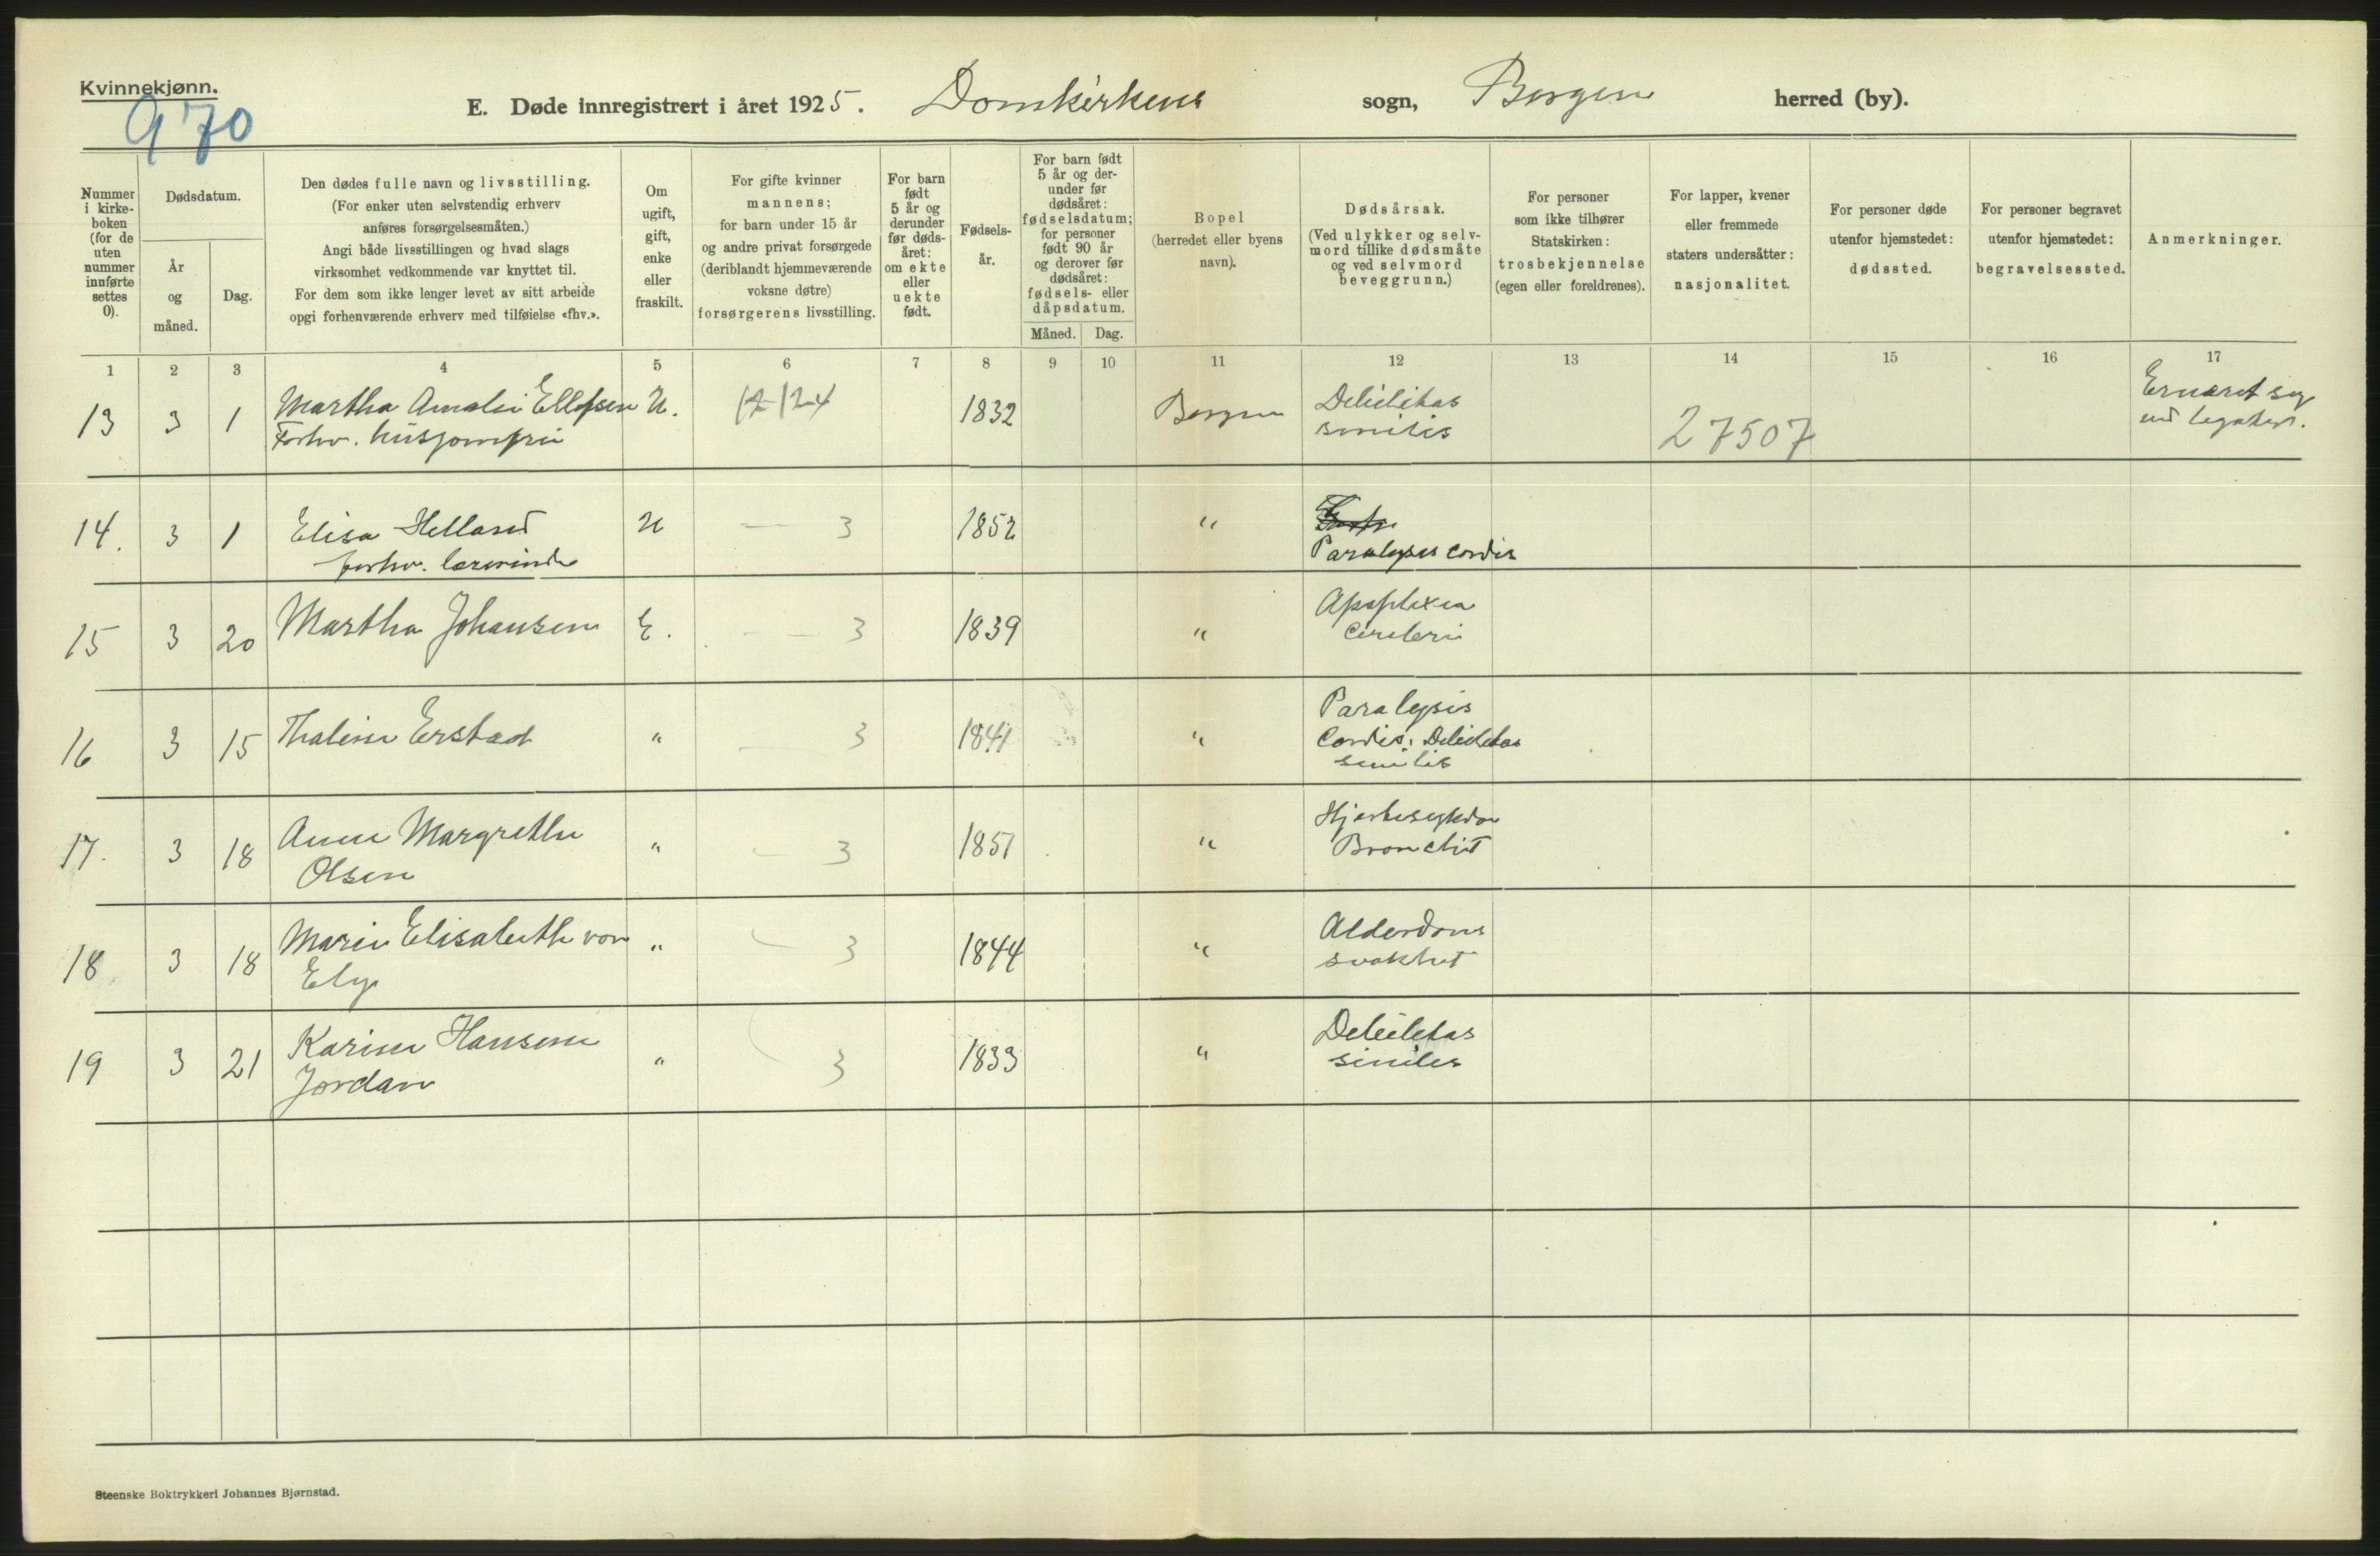 Kvinnekjønn.
970
E. Døde innregistrert i året 1925. Domkirkens sogn, Bergen herred (by).
Nummer i kirke-boken (for de uten nummer innførte settes 0).
Dødsdatum.
År og måned.
Dag.
Den dødes fulle navn og livsstilling.
(For enker uten selvstendig erhverv
anføres forsørgelsesmåten.)
Angi både livsstillingen og hvad slags
virksomhet vedkommende var knyttet til.
For dem som ikke lenger levet av sitt arbeide
opgi forhenværende erhverv med tilføielse «fhv.».
Om
ugift,
gift,
enke
eller
fraskilt.
For gifte kvinner
mannens;
for barn under 15 år
og andre privat forsørgede
(deriblandt hjemmeværende
voksne døtre)
forsørgerens livsstilling.
For barn
født
5 år og
derunder
før døds-
året:
om ekte
eller
uekte
født.
Fødsels-
år.
For barn født
5 år og der-
under før
dødsåret:
fødselsdatum;
for personer
født 90 år
og derover før
dødsåret:
fødsels- eller
dåpsdatum.
Måned. Dag.
Bopel
(herredet eller byens
navn).
Dødsårsak.
(Ved ulykker og selv-
mord tillike dødsmåte
og ved selvmord
beveggrunn.)
For personer
som ikke tilhører
Statskirken:
trosbekjennelse
(egen eller foreldrenes).
For lapper, kvener
eller fremmede
staters undersåtter:
nasjonalitet.
For personer døde
utenfor hjemstedet:
dødssted.
For personer begravet
utenfor hjemstedet:
begravelsessted.
Anmerkninger.
1 2 3 4 5 6 7 8 9 10 11 12 13 14 15 16 17
13 3 1 Martha Amalie Ellefsen U. 12124 1832 Bergen Debilitas
Forhv. husjomfru senilis 27507
Ernæret sig
ved legater.
14. 3 1 Elisa Helland U — 3 1852 "
forhv. lærerinde Paralysis cordis
15 3 20 Martha Johansen E. — — 3 1839 " Apoplexia
cerebri
16 3 15 Thaline Erstad " — 3 1841 " Paralysis
Cordis; Debilitas
senilis
17. 3 18 Anne Margrethe " — 3 1851 " Hjertesykdom
Olsen Bronchit
18 3 18 Marie Elisabeth von " — 3 1844 " Alderdoms
Ely svakhet
19 3 21 Karine Hansine " 3 1833 " Debilitas
Jordan senilis
Steenske Boktrykkeri Johannes Bjørnstad.